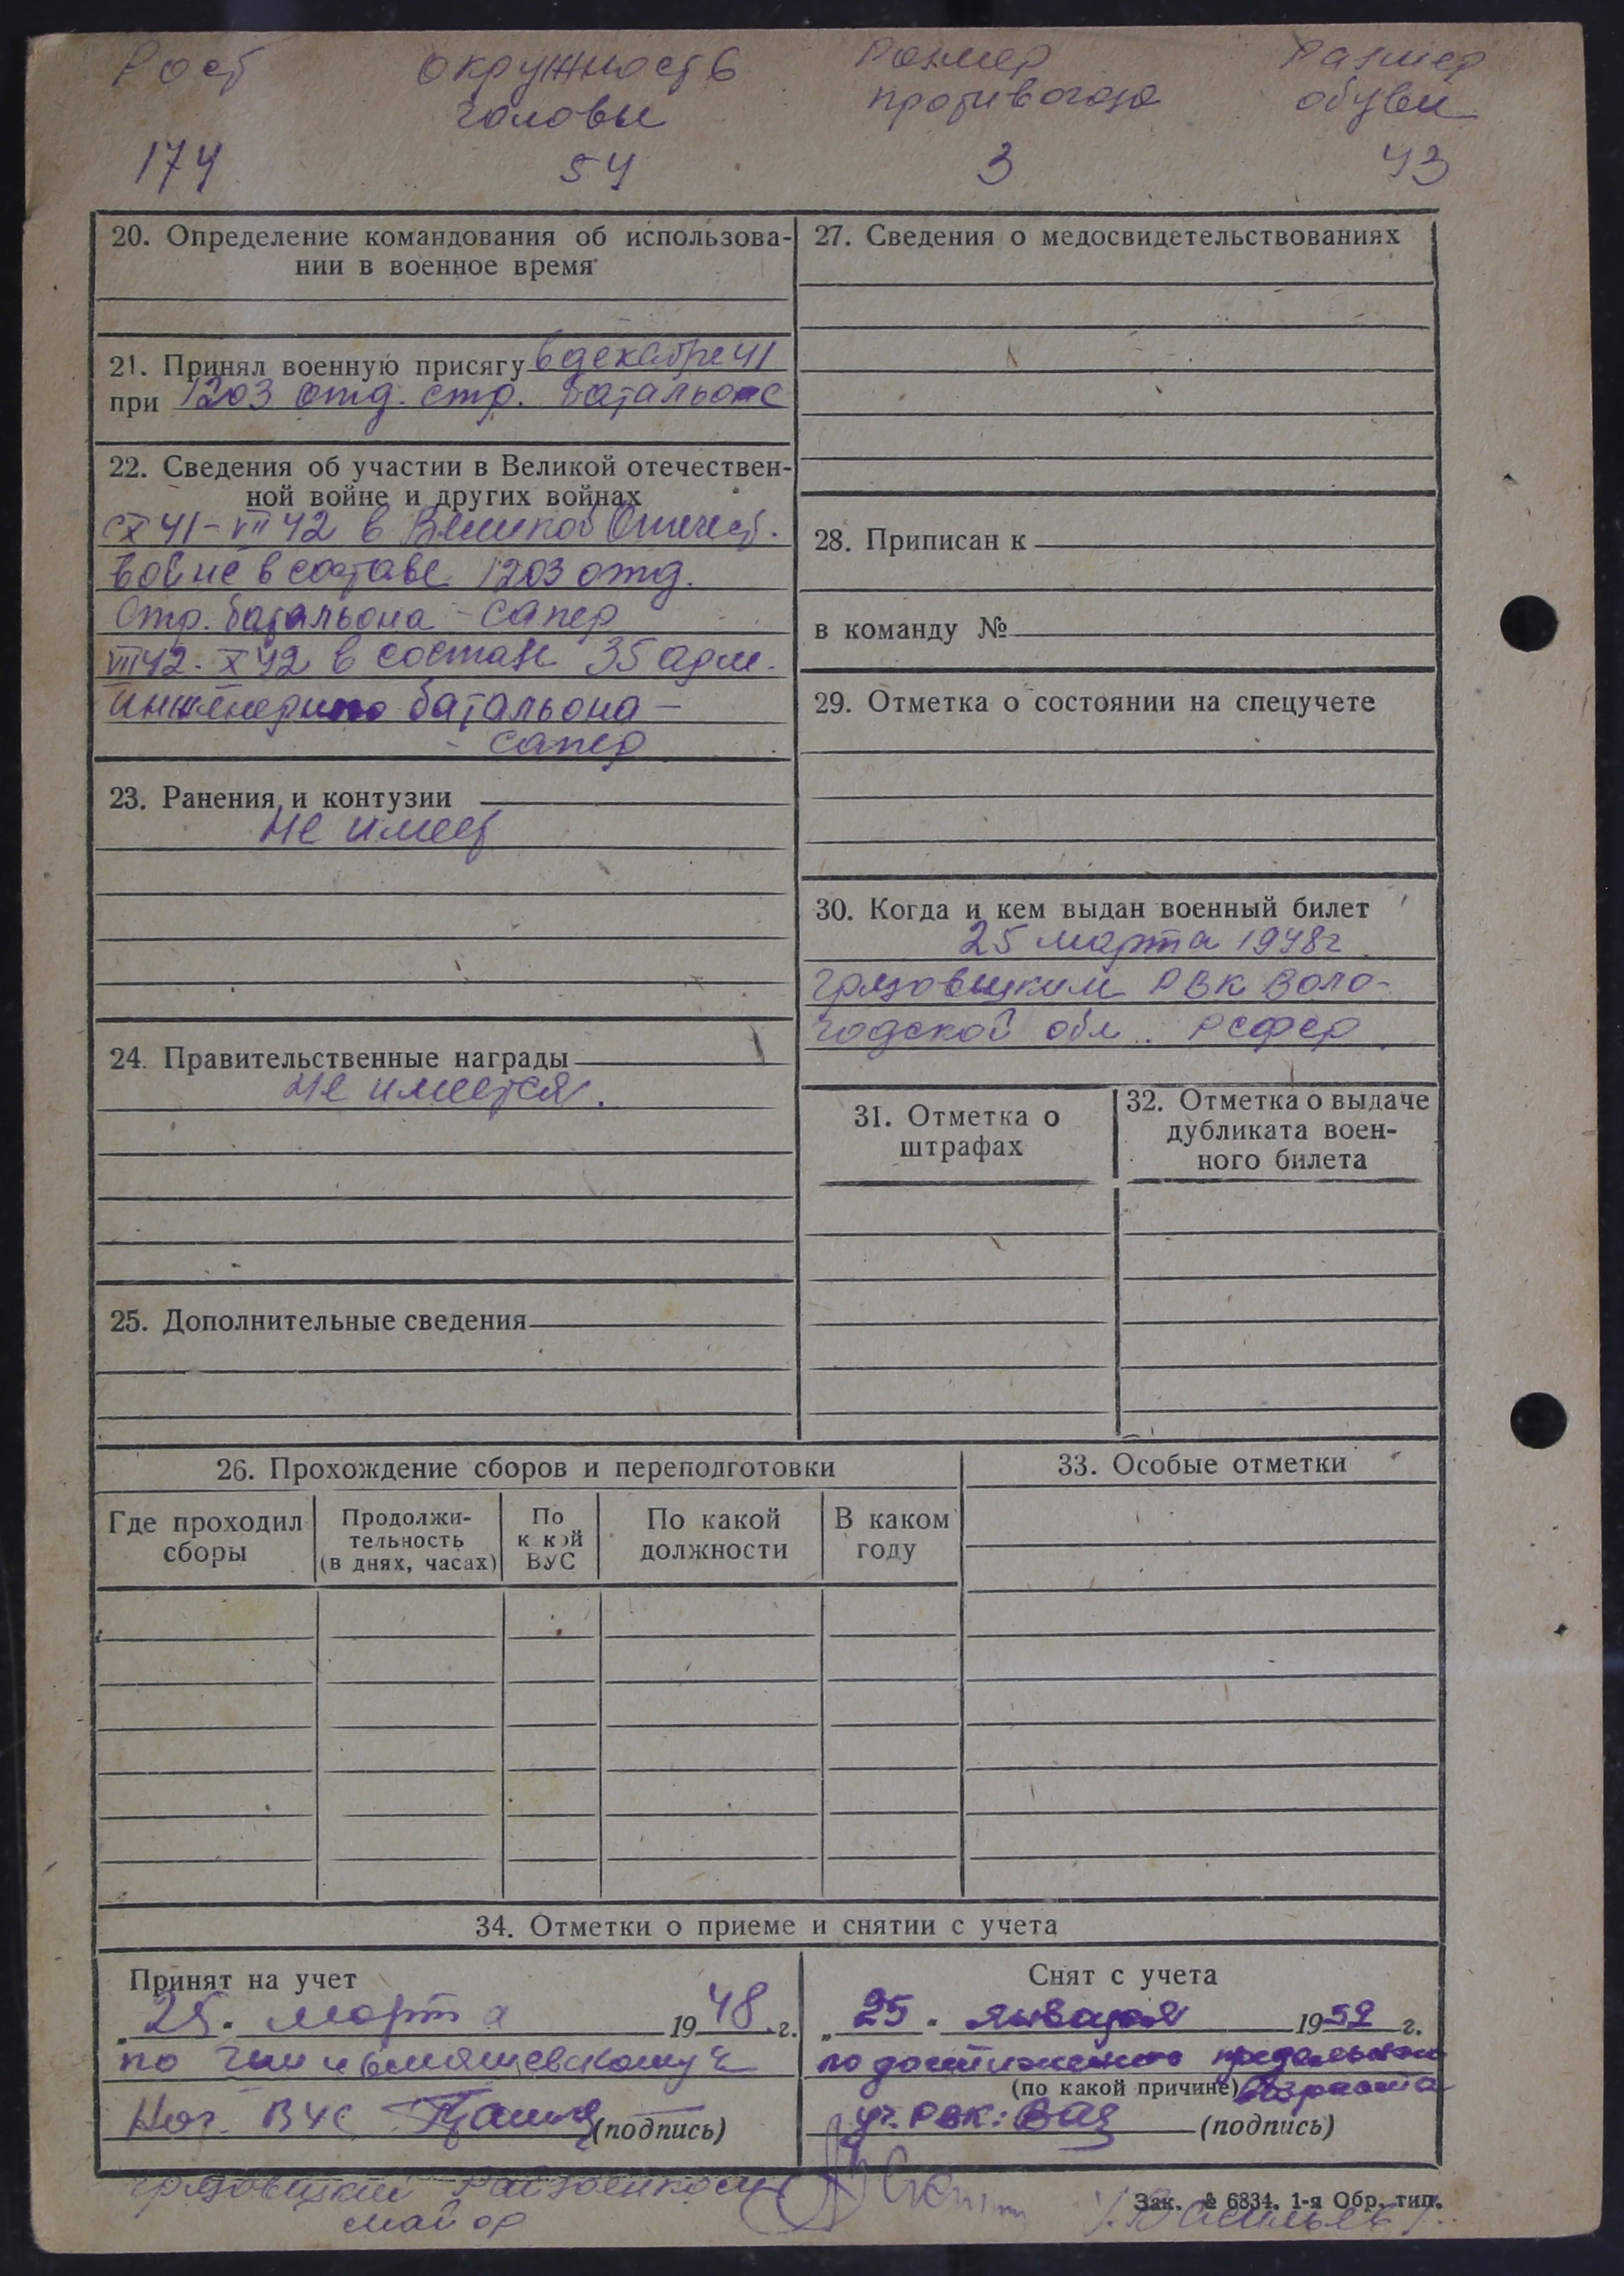 Рост окружность размер размер
головы противогаза обуви
174 54 3 43
20. Определение командования об использова-
нии в военное время
21. Принял военную присягу в декабре 41
при 1203 отд. стр. батальоне
22. Сведения об участии в Великой отечествен-
ной войне и других войнах
с X 41 - VII 42 в Великой Отечест.
войне в составе 1203 отд.
стр. батальона - сапер
VII 42 - X 42 в составе 35 адм.
инженерного батальона -
- сапер
23. Ранения и контузии
не имеет
24. Правительственные награды
не имеется.
25. Дополнительные сведения
27. Сведения о медосвидетельствованиях
28. Приписан к
в команду №
29. Отметка о состоянии на спецучете
30. Когда и кем выдан военный билет
25 марта 1948г
Грязовецким РВК Воло-
годской обл. РСФСР
31. Отметка о
штрафах
32. Отметка о выдаче
дубликата воен-
ного билета
26. Прохождение сборов и переподготовки
Где проходил
сборы
Продолжи-
тельность
(в днях, часах)
По
какой
ВУС
По какой
должности
В каком
году
33. Особые отметки
34. Отметки о приеме и снятии с учета
Принят на учет
„25" марта 1948 г.
по
Нач. ВУС (подпись)
Снят с учета
„25" января 1952 г.
по достижению предельного
(по какой причине) возраста
РВК: (подпись)
Грязовецкий Райвоенком
майор
Зак. № 6834. 1-я Обр. тип.
/Васильев/.